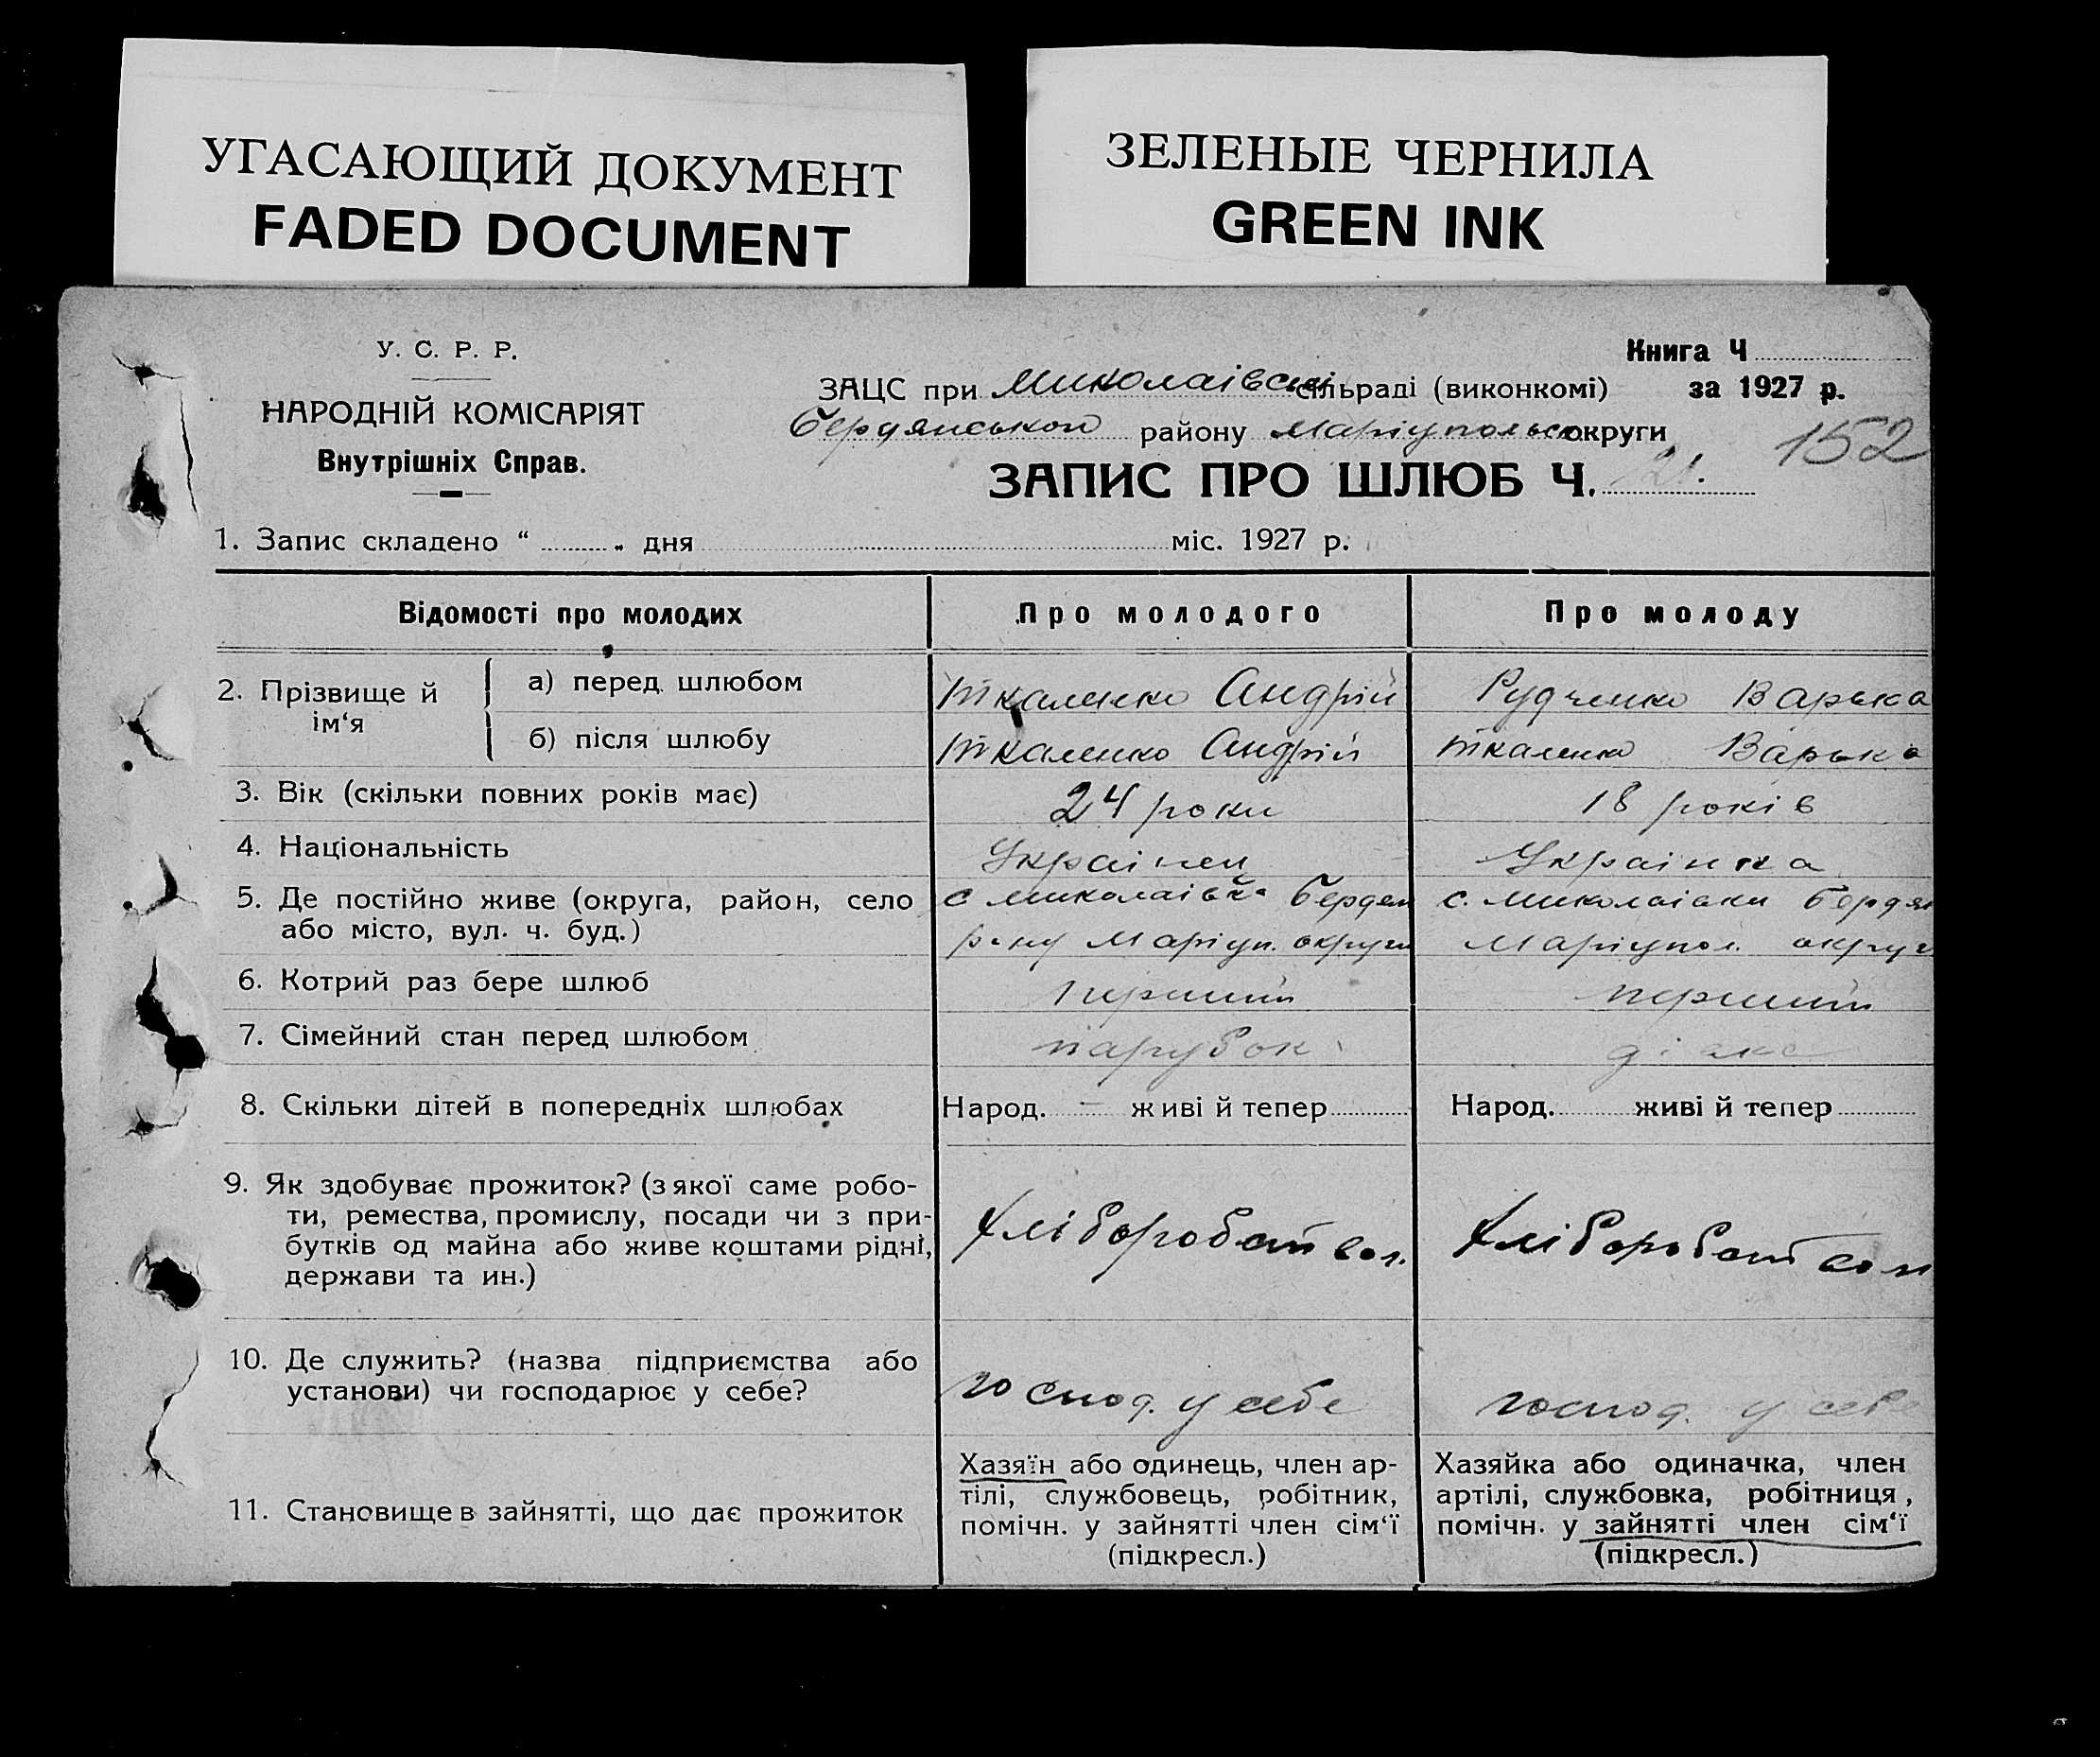 УГАСАЮЩИЙ ДОКУМЕНТ
FADED DOCUMENT
ЗЕЛЕНЫЕ ЧЕРНИЛА
GREEN INK
У. С. Р. Р.
НАРОДНІЙ КОМІСАРІЯТ
Внутрішніх Справ.
Книга Ч
ЗАЦС при Миколаівскі сільраді (виконкомі) за 1927 р.
Бердянськой району Маріупольськ округи
152
ЗАПИС ПРО ШЛЮБ Ч. 21.
1. Запис складено “ „ дня міс. 1927 р.
Відомості про молодих Про молодого Про молоду
2. Прізвище й ім‘я
а) перед шлюбом Ткаленко Андрій Рудченко Варька
б) після шлюбу Ткаленко Андрій Ткаленко Варька
3. Вік (скільки повних років має) 24 роки 18 років
4. Національність Украінец Украінка
5. Де постійно живе (округа, район, село с Миколаівка Бердян с. Миколаівки Бердян
або місто, вул. ч. буд.) р-ну Маріуп. округи Маріупол. округи
6. Котрий раз бере шлюб перший перший
7. Сімейний стан перед шлюбом парубок дівка
8. Скільки дітей в попередніх шлюбах Народ. — живі й тепер Народ. живі й тепер
9. Як здобуває прожиток? (з якої саме робо-
ти, ремества, промислу, посади чи з при-
бутків од майна або живе коштами рідні,
держави та ин.)
Хліборобством Хліборобством
10. Де служить? (назва підприємства або
установи) чи господарює у себе?
господ. у себе господ. у себе
11. Становище в зайнятті, що дає прожиток
Хазяїн або одинець, член ар-
тілі, службовець, робітник,
помічн. у зайнятті член сім‘ї
(підкресл.)
Хазяйка або одиначка, член
артілі, службовка, робітниця,
помічн. у зайнятті член сім‘ї
(підкресл.)